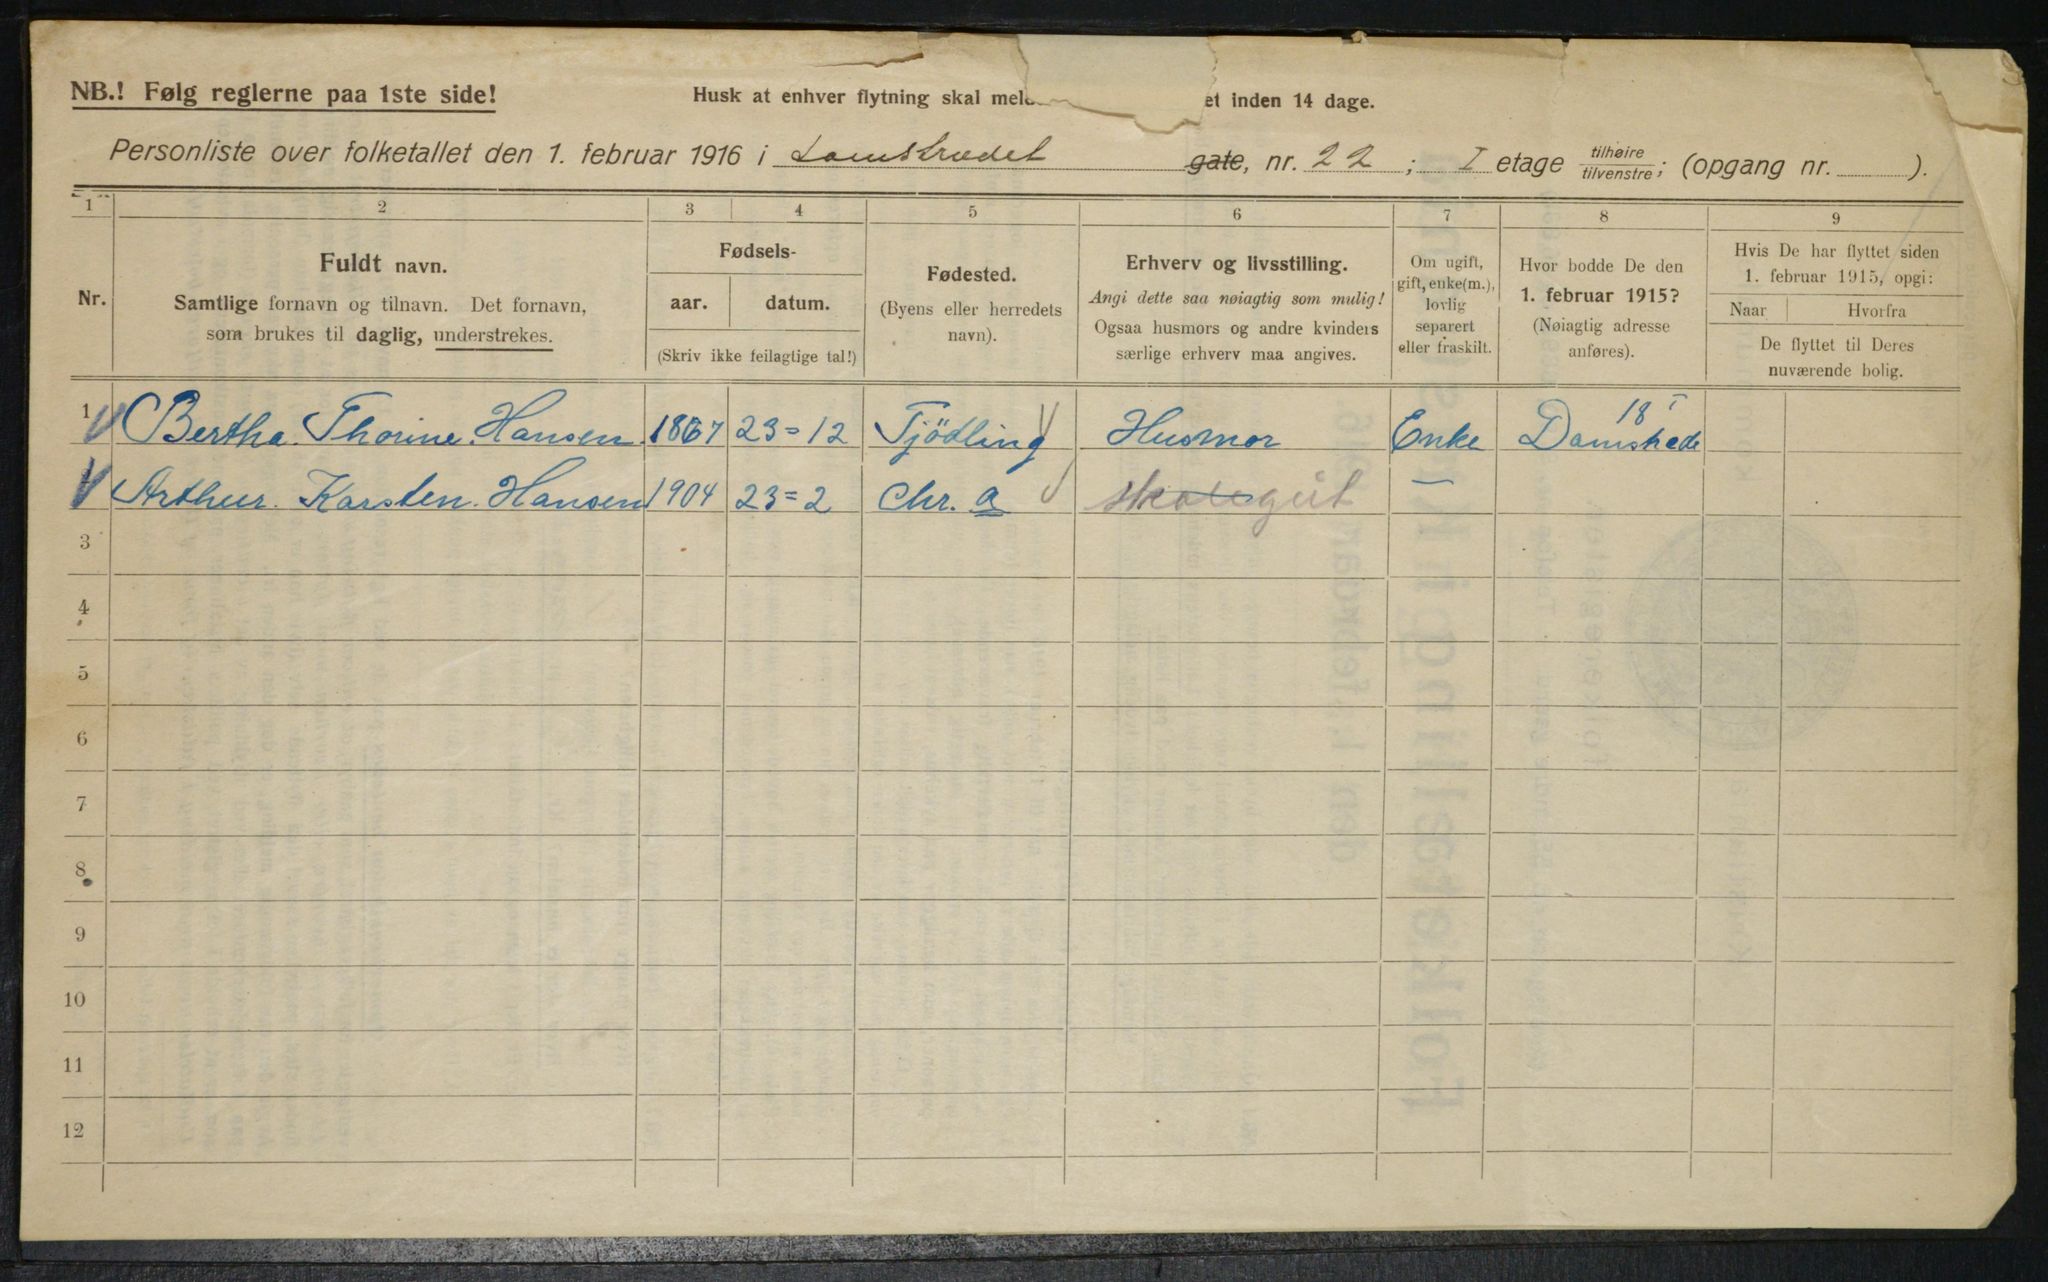 NB.! Følg reglerne paa 1ste side!
Husk at enhver flytning skal meld et inden 14 dage.
Personliste over folketallet den 1. februar 1916 i Damstrædet gate, nr. 22; I etage tilhøire tilvenstre; (opgang nr. ).
1 2 3 4 5 6 7 8 9
Nr.
Fuldt navn.
Samtlige fornavn og tilnavn. Det fornavn,
som brukes til daglig, understrekes.
Fødsels-
aar. datum.
(Skriv ikke feilagtige tal!)
Fødested.
(Byens eller herredets
navn).
Erhverv og livsstilling.
Angi dette saa nøiagtig som mulig!
Ogsaa husmors og andre kvinders
særlige erhverv maa angives.
Om ugift,
gift, enke(m.),
lovlig
separert
eller fraskilt.
Hvor bodde De den
1. februar 1915?
(Nøiagtig adresse
anføres).
Hvis De har flyttet siden
1. februar 1915, opgi:
Naar Hvorfra
De flyttet til Deres
nuværende bolig.
1 Bertha. Thorine. Hansen. 1867 23=12 Tjödling Husmor Enke Damstrede 18 I
Arthur. Karsten. Hansen 1904 23=2 Chr. a skolegut —
3
4
5
6
7
8
9
10
11
12